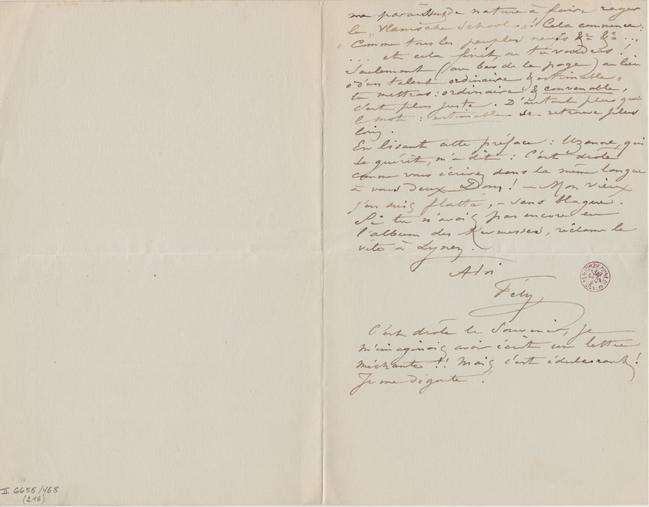 me paraissent de nature à faire rager
le "Vlamische School"! Cela commence:
Comme tous les peuples neufs &a &a ...
... et cela finit, où tu voudras!
Seulement (au bas de la page) au lieu
d'un talent ordinaire & estimable,
tu mettras: ordinaire & convenable,
c'est plus juste. D'autant plus que
le mot: estimable se retrouve plus
loin.
En lisant cette préface: Uzanne, qui
se guérit, m'a dit: C'est drôle
comme vous écrivez dans la même langue
à vous deux Dom! - Mon vieux
j'en suis flatté, - sans blague.
Si tu n'avais pas encore eu
l'album des Kermesses, réclame le
vite à Lynen.
A toi
Fély
C'est drôle le Souvenir, je
m'imaginais avoir écrit une lettre
méchante!! Mais c'est édulcorant!
Je me dégoute.
II 6655/458
(216)